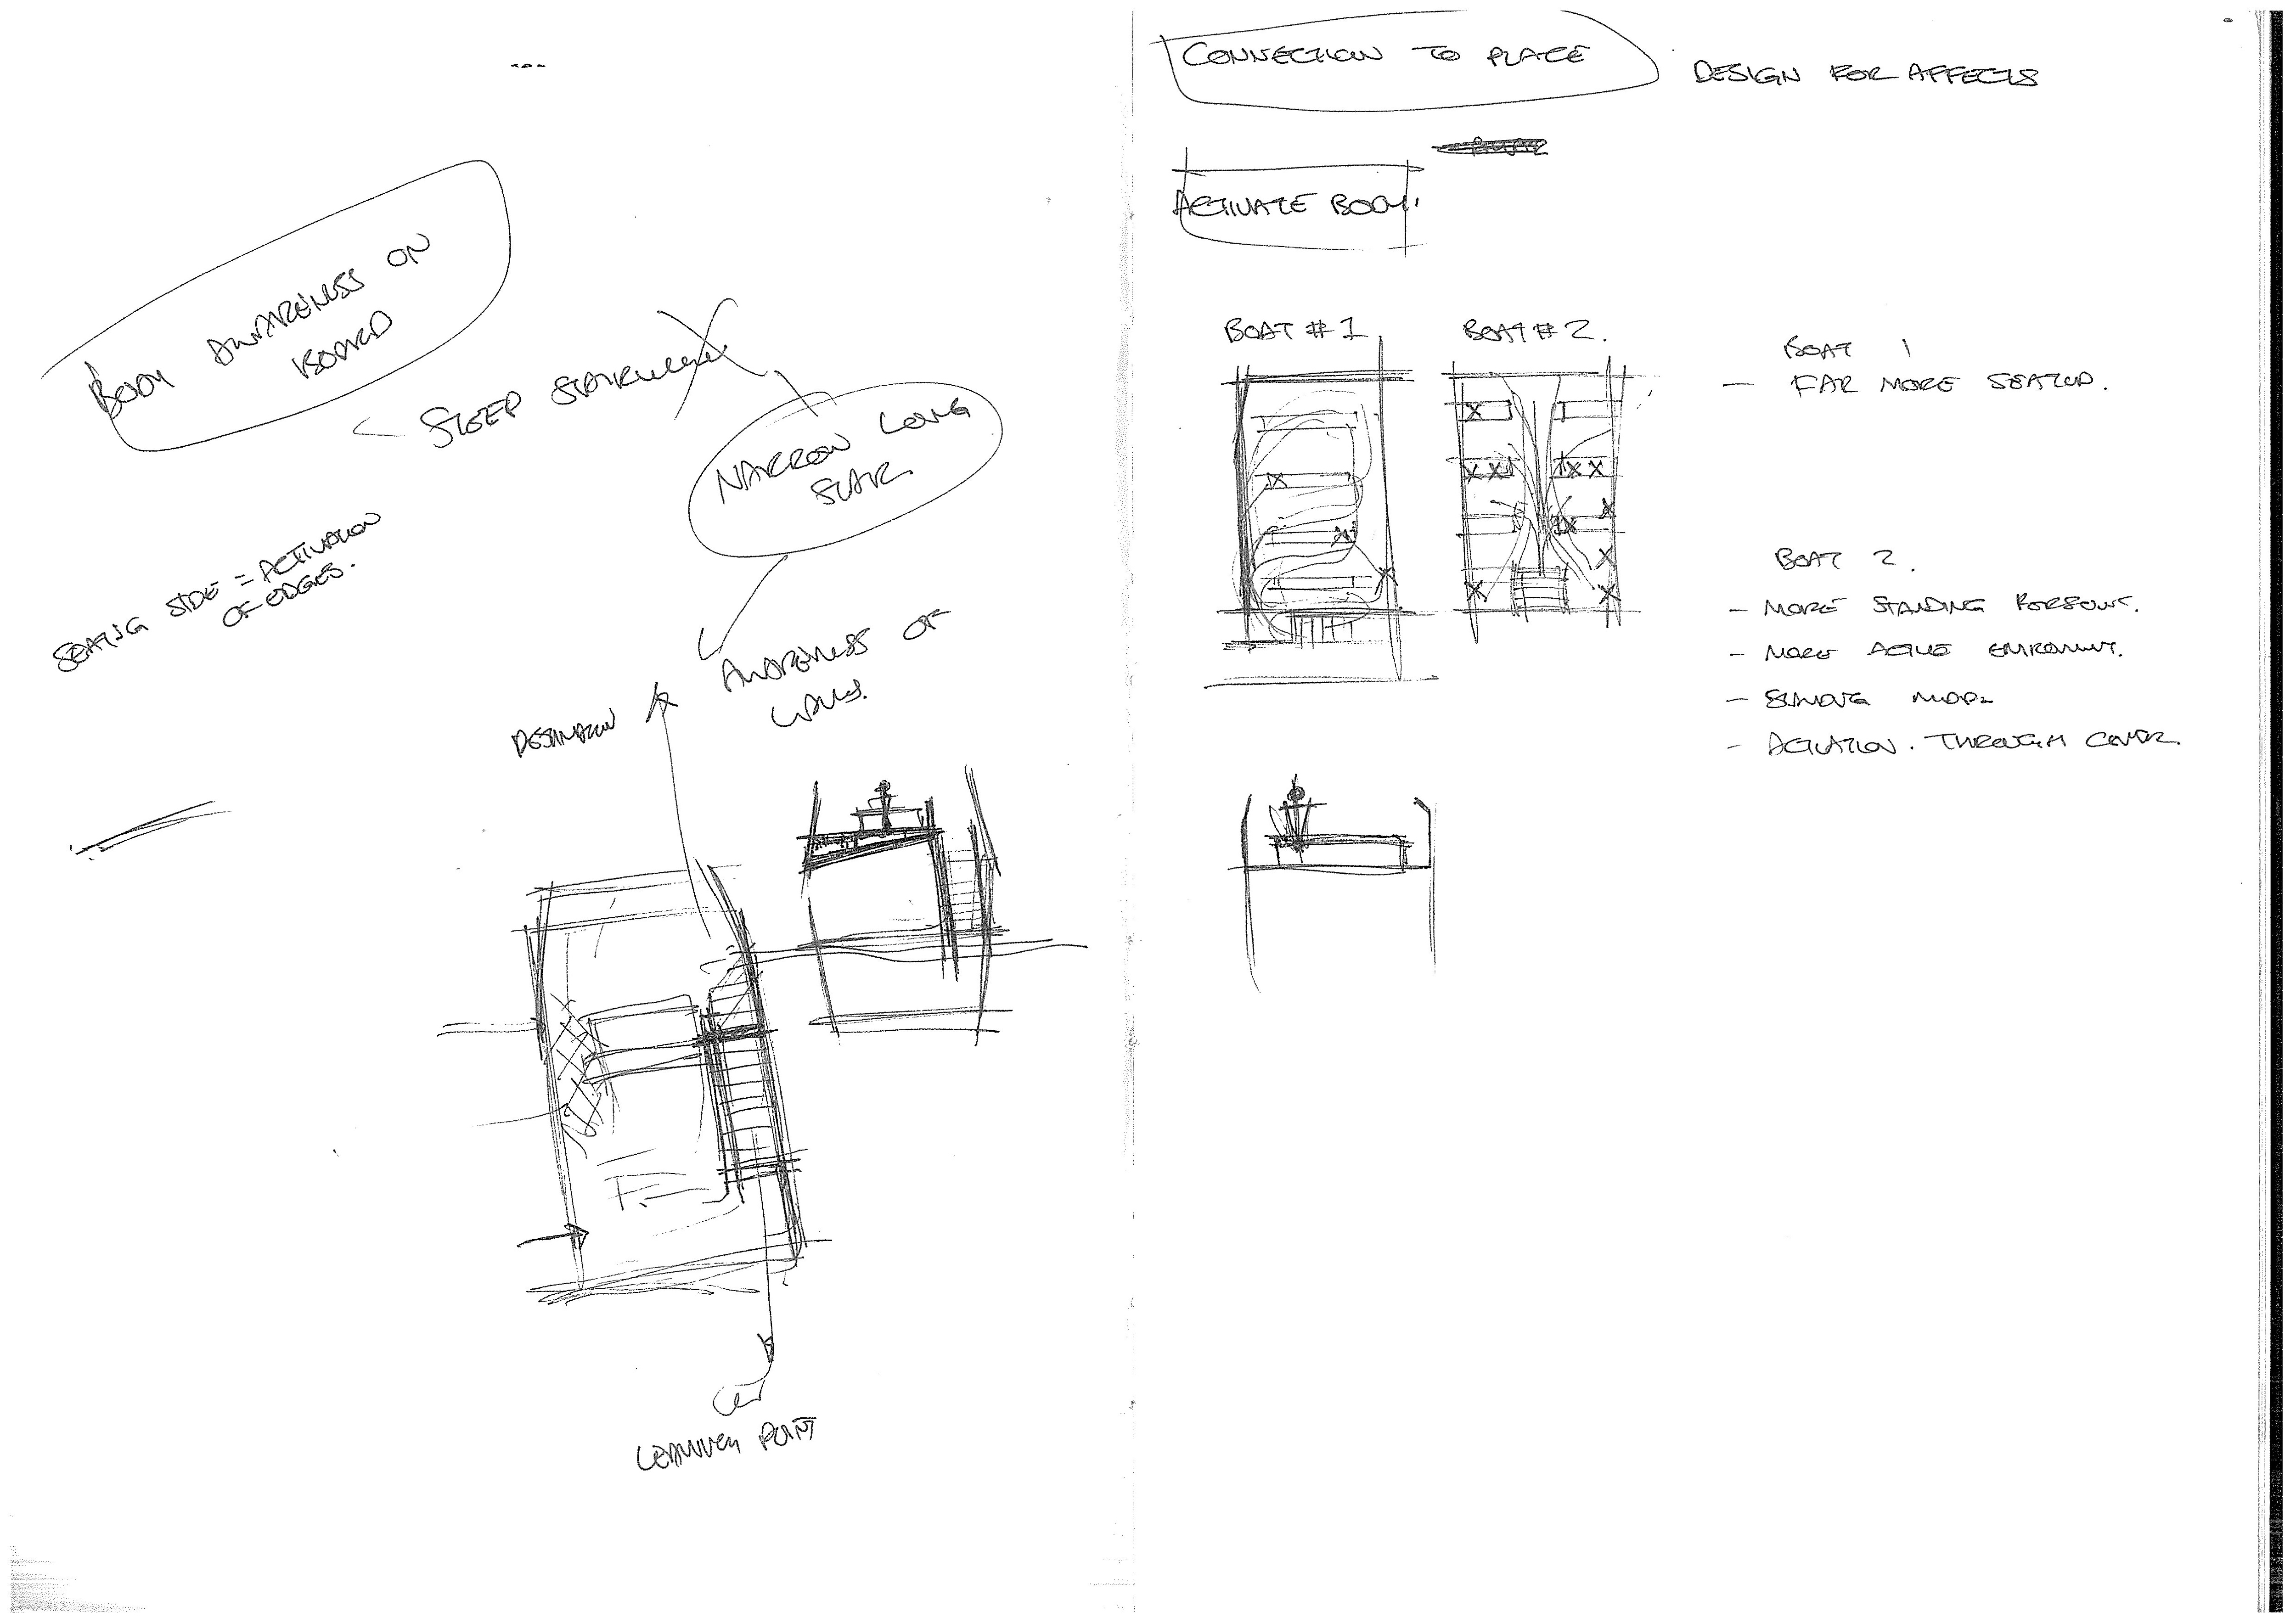 BODY AWARENESS ON
BOARD
STEEP STAIRWELL
NARROW LONG
STAIR
SEATING SIDE = ACTIVATION
OF EDGES.
AWARENESS OF
WALLS.
DESTINATION
LEARNING POINT
CONNECTION TO PLACE
DESIGN FOR AFFECTS
ACTIVATE BODY.
BOAT #1
BOAT #2.
BOAT 1
— FAR MORE SEATED.
BOAT 2.
- MORE STANDING PERSONS.
- MORE ACTIVE ENVIROMENT.
- STANDING MORE
- ACTIVATION. THROUGH CENTER.